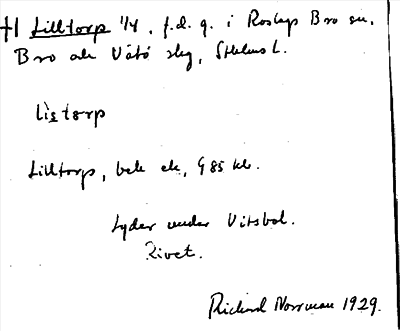 †1 Lilltorp 1/4, f.d. g. i Roslags Bro sn,
Bro och Vätö skg, Sthlms l.
Listorp
Lilltorp, beb. ek, G 85 kv.
Lyder under Vitsbol.
Rivet.
Richard Norrman 1929.